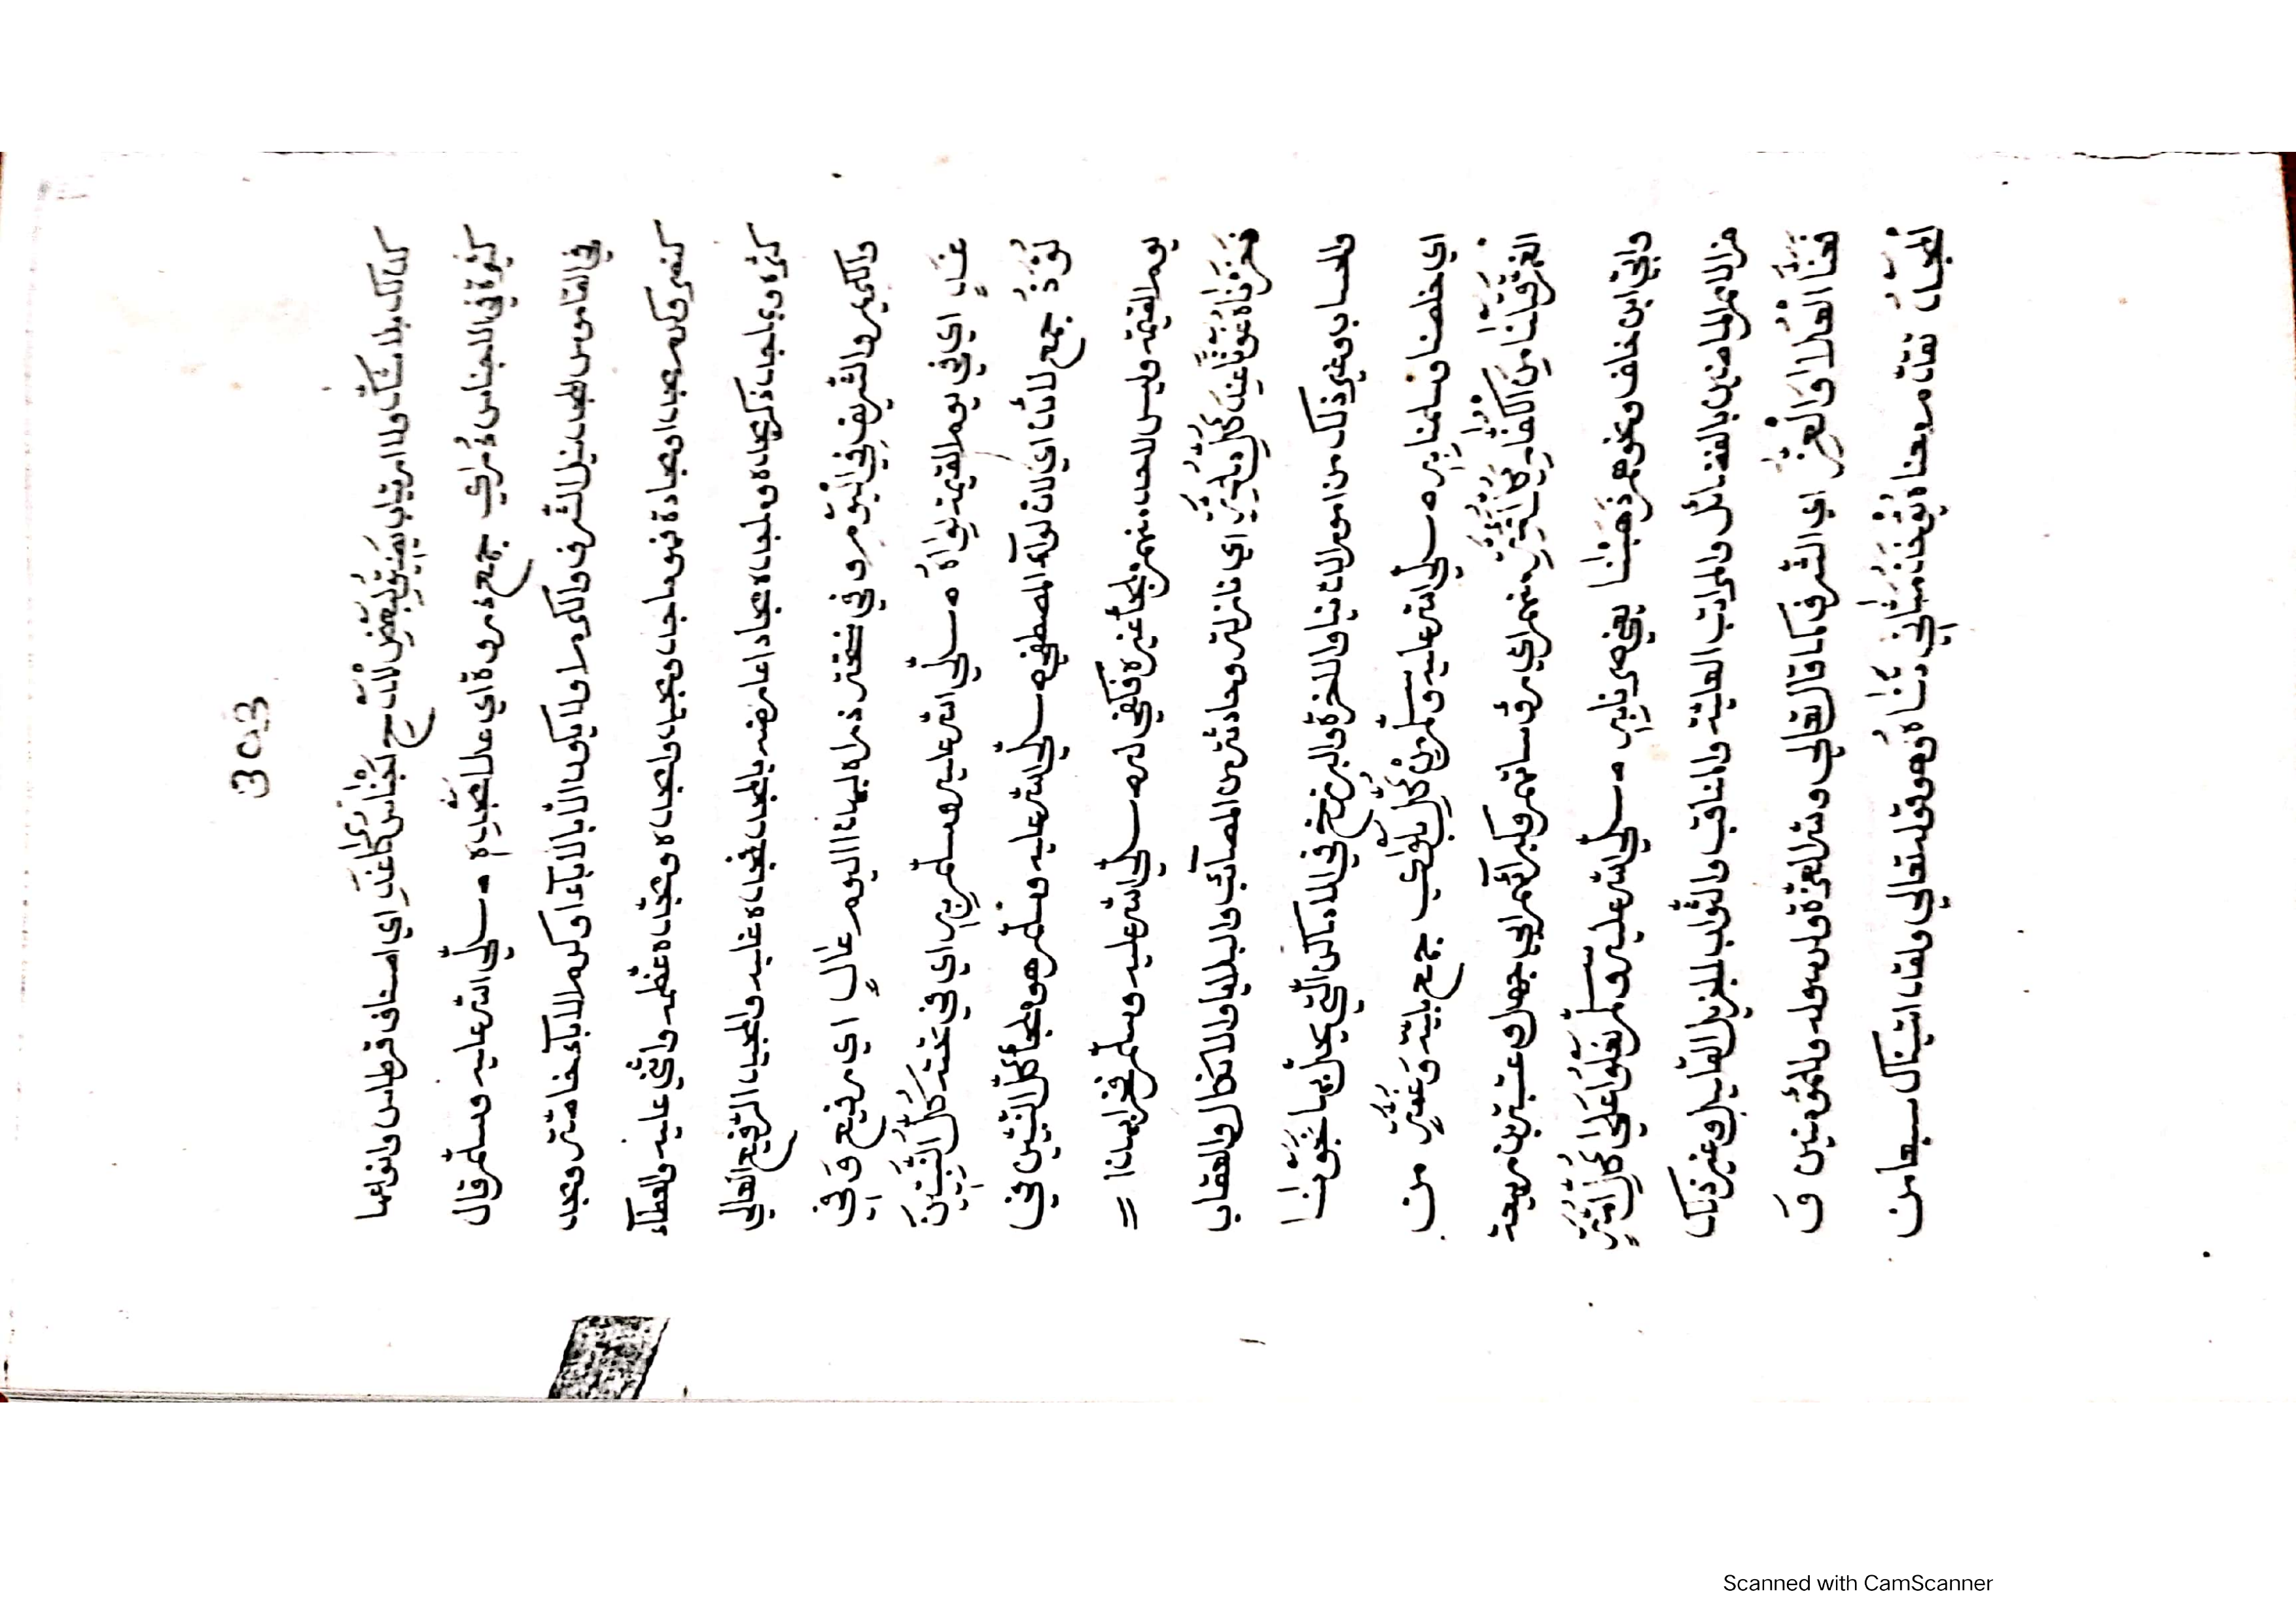 303
كذلك بلا شك ولا ارتياب يمينه ولبعض لانت ج لجناس كاغد اي اصناف قرطاس وانواعها
كثيرة في الاجناس ذراي جمع ذروة اي علا المجد به صلى الله عليه وسلم قال
في القاموس المجد نيل الشرف والكرم او لا يكون الا بالاباء او كرم الاباء خاصة ومجد
كنصر وكرم مجدا ومجادة فهو ماجد ومجيد وامجده ومجده عظمه واثنى عليه والعطاء
كثره وتماجد ذكر مجده وماجده مجادا عارضه بالمجد فمجده غلبه والمجيد الرفيع العالي
والكريم والشريف في اليوم وفي نسخة ذراه لهذا اليوم عال اي رفيع وفي
غد اي في يوم القيمة لواه صلى الله عليه وسلم به اي في تحته كل النبيين
لوذ جمع لائذ اي لان لواء المصطفى صلى الله عليه وسلم هو ملجأ كل النبيين في
يوم القيمة وليس لاحد منهم ملجأ غيره فكفى له صلى الله عليه وسلم فخرا بهذا =
فغزناه غوثا عند كل ملمة اي نازلة وحادثة من المصائب والبلايا والانكال والعقاب
والعذاب وغير ذلك من امور الدنيا والاخرة والبرزخ في الاماكن التي يحل بها نجونا
اي خلصنا وسلمنا به صلى الله عليه وسلم من كل بلواي جمع بلية وغمة من
الغم قتلنا من الكفار كل منهم اي رؤسائهم وكبرائهم ابي جهل وعتبة بن ربيعة
وابي ابن خلف ونحوهم ذهبنا يعني صرنا به صلى الله عليه وسلم نعلو على كل امة
من الامم الماضين بالفضائل والمراتب العالية والمناقب والثواب الجزيل القليل وغير ذلك
فمنا العلا والعز اي الشرف كما قال تعالى ولله العزة ولرسوله وللمؤمنين و
المجد تقدم معناه نوخذ مثاني دناه وهو قوله تعالى ولقد اتيناك سبعا من
Scanned with CamScanner